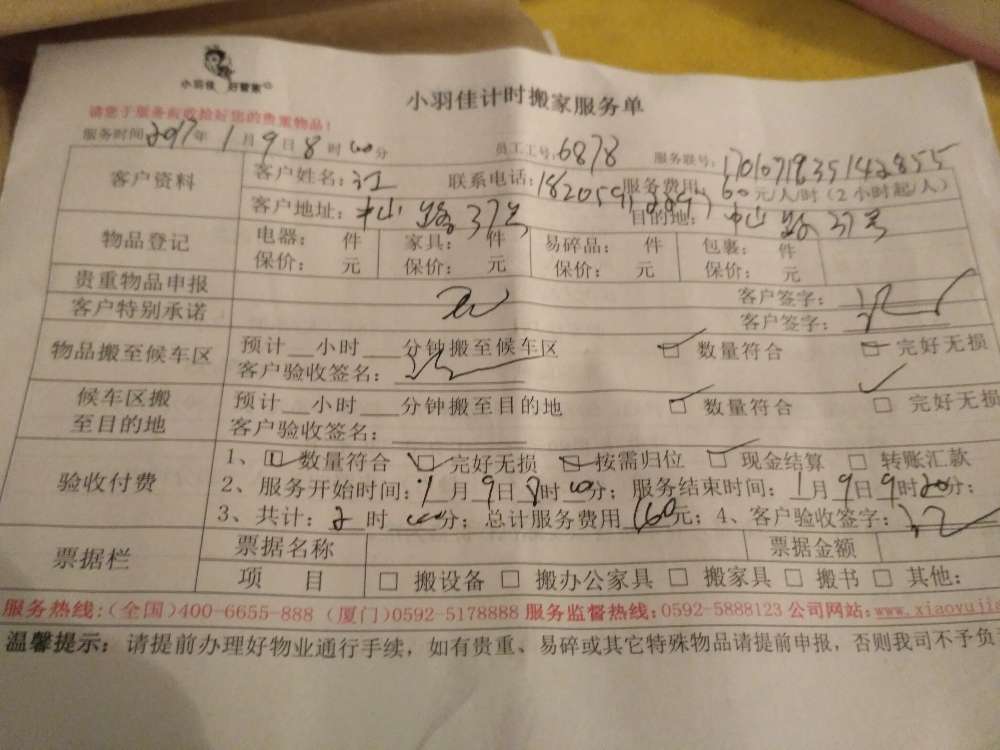 小羽佳 好管家
小羽佳计时搬家服务单
请您于服务前收拾好您的贵重物品！
服务时间2017年1月9日8时00分 员工工号：6878 服务联号：1701071835142855
客户资料 客户姓名：江 联系电话： 服务费用：60元/人/时（2小时起/人）
客户地址：中山路37号 目的地：中山路37号
物品登记 电器： 件 家具： 件 易碎品： 件 包裹： 件
保价： 元 保价： 元 保价： 元 保价： 元
贵重物品申报 无 客户签字：
客户特别承诺 客户签字：
物品搬至候车区 预计__小时___分钟搬至候车区 □ 数量符合 □ 完好无损
客户验收签名：
候车区搬至目的地 预计__小时___分钟搬至目的地 □ 数量符合 □ 完好无损
客户验收签名：
验收付费 1、□ 数量符合 □ 完好无损 □ 按需归位 □ 现金结算 □ 转账汇款
2、服务开始时间：1月9日8时00分；服务结束时间：1月9日9时20分；
3、共计：2时00分；总计服务费用160元；4、客户验收签字：
票据栏 票据名称 票据金额
项 目 □ 搬设备 □ 搬办公家具 □ 搬家具 □ 搬书 □ 其他：
服务热线：(全国)400-6655-888 (厦门)0592-5178888 服务监督热线：0592-5888123 公司网站：www.xiaoyujia
温馨提示：请提前办理好物业通行手续，如有贵重、易碎或其它特殊物品请提前申报，否则我司不予负